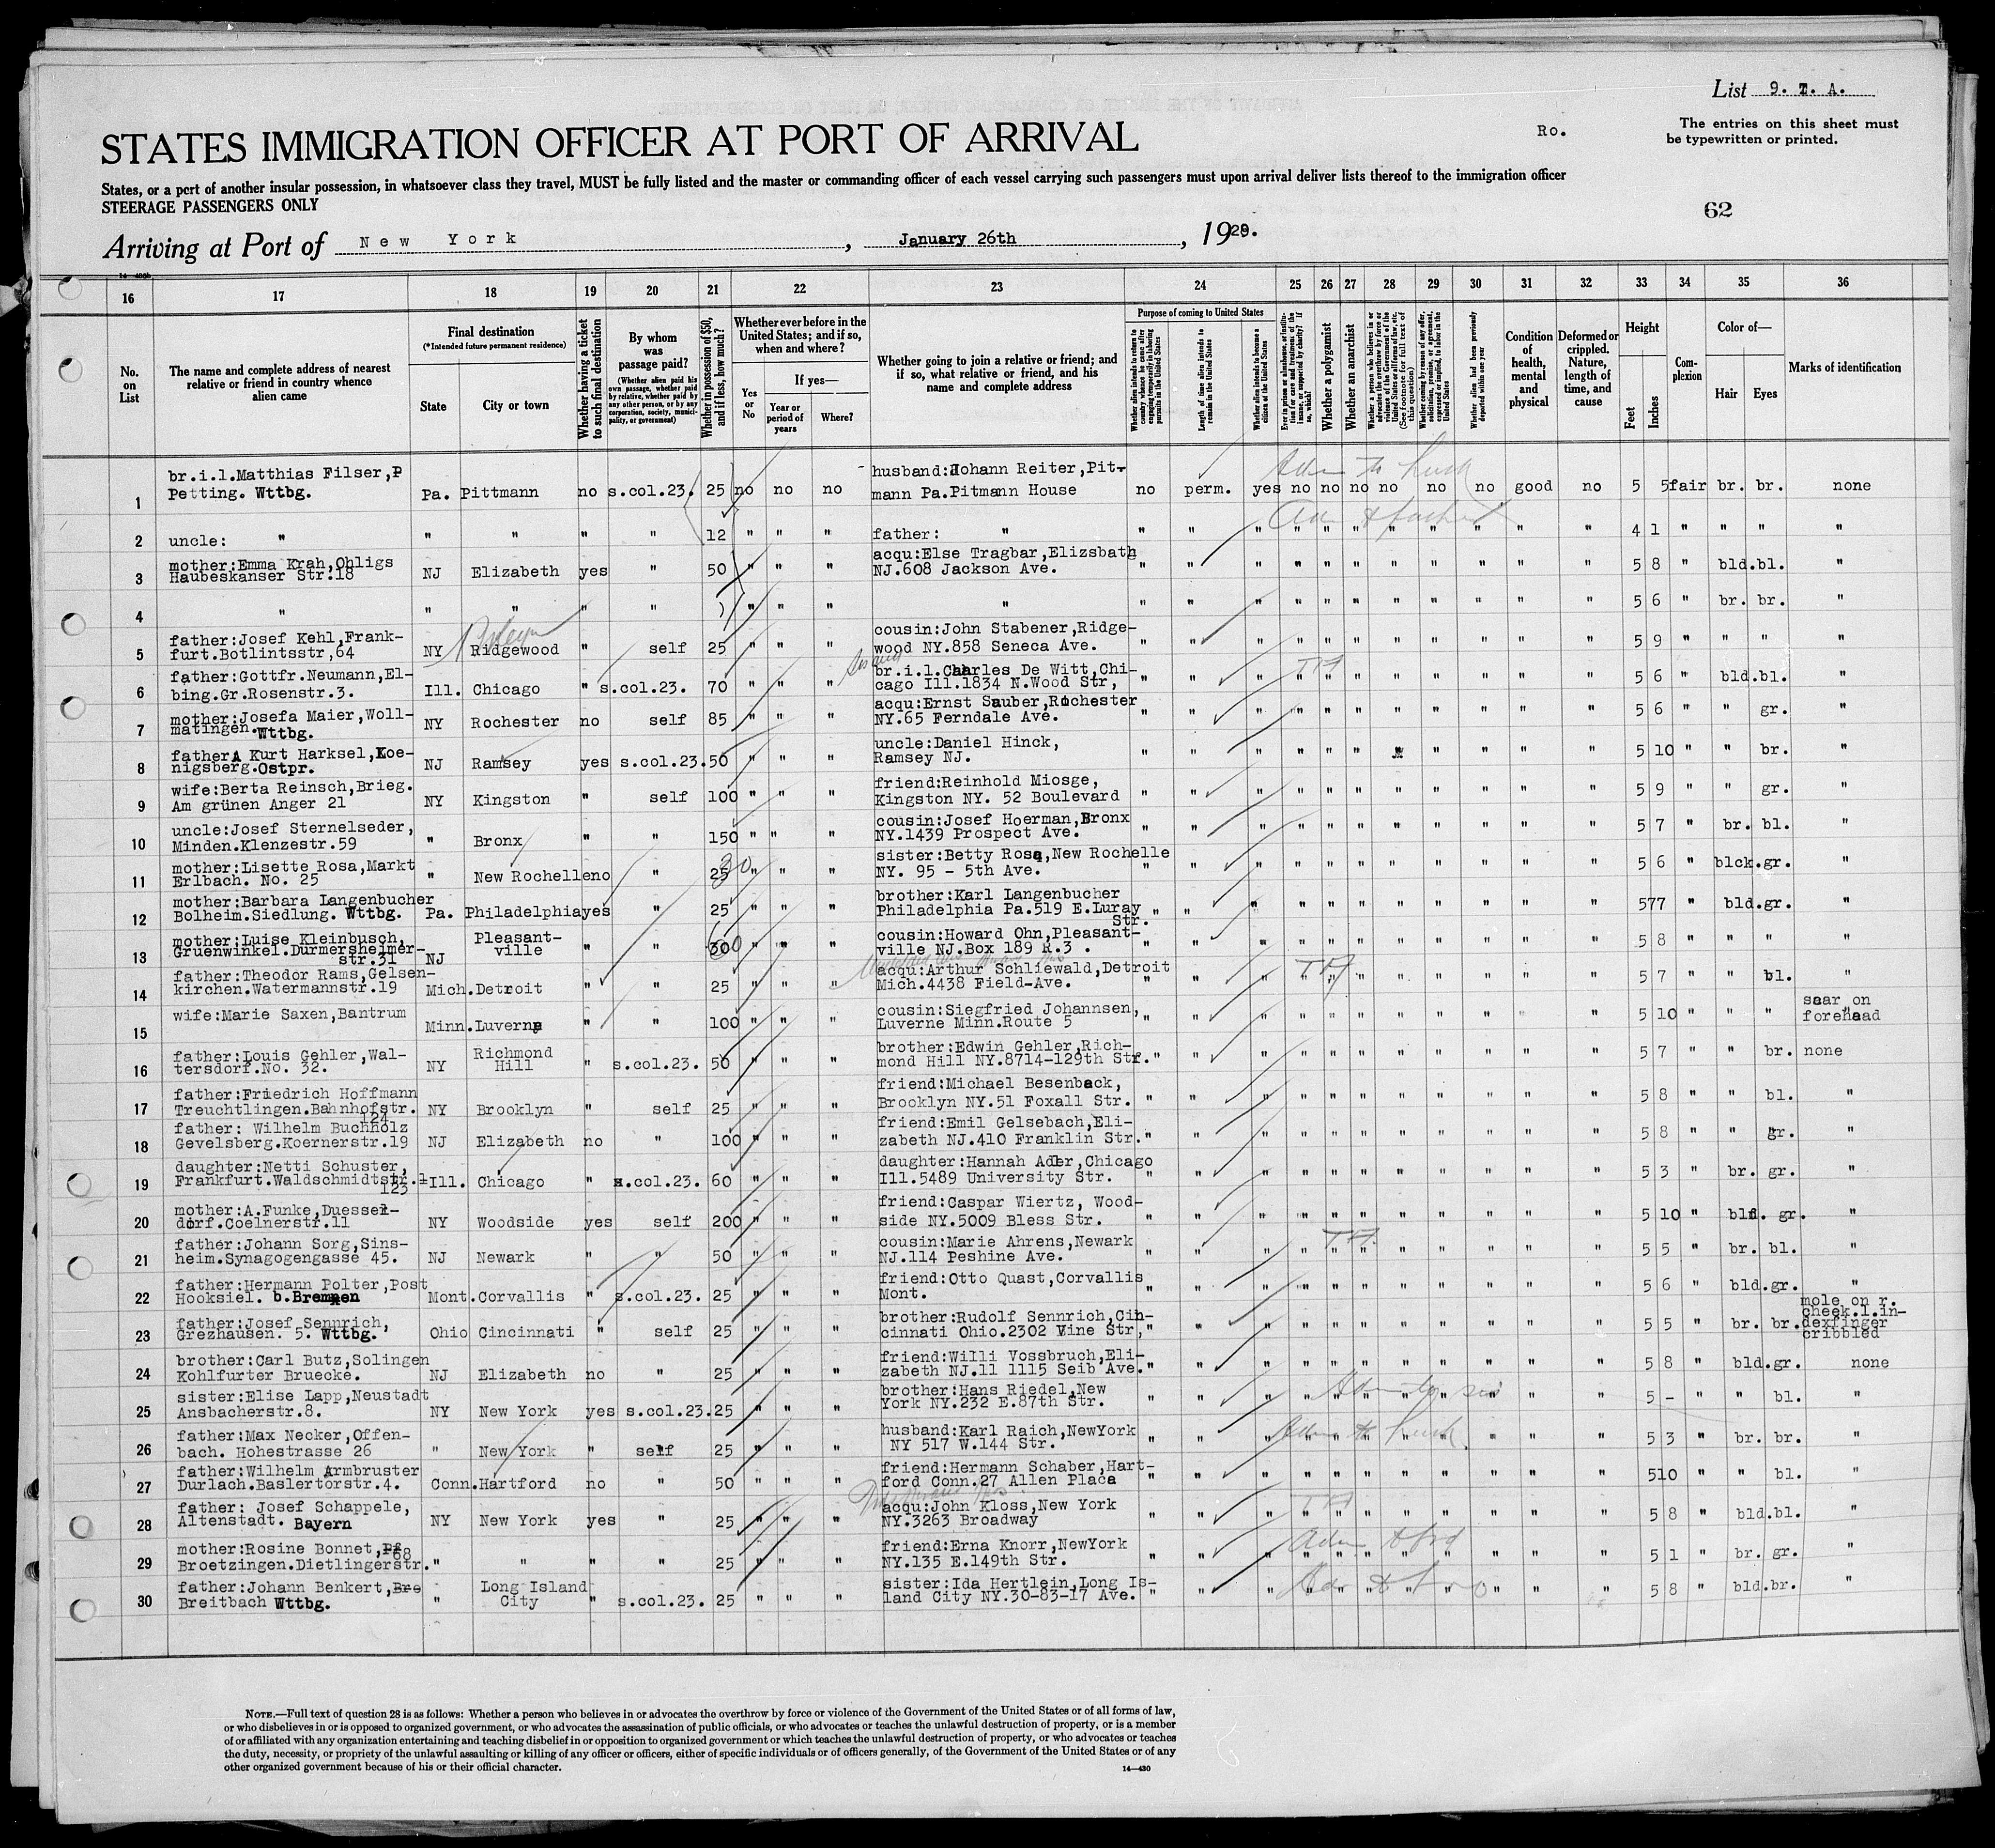 List 9. Z. A.
STATES IMMIGRATION OFFICER AT PORT OF ARRIVAL
Ro.
The entries on this sheet must
be typewritten or printed.
States, or a port of another insular possession, in whatsoever class they travel, MUST be fully listed and the master or commanding officer of each vessel carrying such passengers must upon arrival deliver lists thereof to the immigration officer
STEERAGE PASSENGERS ONLY
62
Arriving at Port of New York, January 26th, 1929.
16 17 18 19 20 21 22 23 24 25 26 27 28 29 30 31 32 33 34 35 36
No. on List
The name and complete address of nearest relative or friend in country whence alien came
Final destination
(*Intended future permanent residence)
State
City or town
Whether having a ticket to such final destination
By whom was passage paid?
(Whether alien paid his own passage, whether paid by relative, whether paid by any other person, or by any corporation, society, municipality, or government)
Whether in possession of $50, and if less, how much?
Whether ever before in the United States; and if so, when and where?
Yes or No
If yes—
Year or period of years
Where?
Whether going to join a relative or friend; and if so, what relative or friend, and his name and complete address
Purpose of coming to United States
Whether alien intends to return to country whence he came after engaging temporarily in laboring pursuits in the United States
Length of time alien intends to remain in the United States
Whether alien intends to become a citizen of the United States
Ever in prison or almshouse, or institution for care and treatment of the insane, or supported by charity? If so, which?
Whether a polygamist
Whether an anarchist
Whether a person who believes in or advocates the overthrow by force or violence of the Government of the United States or all forms of law, etc. (See footnote for full text of this question)
Whether coming by reason of any offer, solicitation, promise, or agreement, expressed or implied, to labor in the United States
Whether alien had been previously deported within one year
Condition of health, mental and physical
Deformed or crippled. Nature, length of time, and cause
Height
Feet
Inches
Complexion
Color of—
Hair
Eyes
Marks of identification
1 br.i.l.Matthias Filser,P Petting. Wttbg. Pa. Pittmann no s.col.23. 25 no no no husband:Johann Reiter,Pitmann Pa.Pitmann House no perm. yes no no no no no no good no 5 5 fair br. br. none
2 uncle: " " " " " 12 " " " father: " " " " " " " " " " " " 4 1 " " " "
3 mother:Emma Krah,Ohligs Haubeskanser Str.18 NJ Elizabeth yes " 50 " " " acqu:Else Tragbar,Elizsbath NJ.608 Jackson Ave. " " " " " " " " " " " 5 8 " bld. bl. "
4 " " " " " " " " " " " " " " " " " " " " 5 6 " br. br. "
5 father:Josef Kehl,Frankfurt.Botlintsstr,64 NY Ridgewood " self 25 " " " cousin:John Stabener,Ridgewood NY.858 Seneca Ave. " " " " " " " " " " " 5 9 " " " "
6 father:Gottfr.Neumann,Elbing.Gr.Rosenstr.3. Ill. Chicago " s.col.23. 70 " " " br.i.l.Charles De Witt,Chicago Ill.1834 N.Wood Str, " " " " " " " " " " " 5 6 " bld. bl. "
7 mother:Josefa Maier,Wollmatingen.Wttbg. NY Rochester no self 85 " " " acqu:Ernst Sauber,Rochester NY.65 Ferndale Ave. " " " " " " " " " " " 5 6 " " gr. "
8 father Kurt Harksel,Koenigsberg.Ostpr. NJ Ramsey yes s.col.23. 50 " " " uncle:Daniel Hinck, Ramsey NJ. " " " " " " " " " " " 5 10 " " br. "
9 wife:Berta Reinsch,Brieg. Am grünen Anger 21 NY Kingston " self 100 " " " friend:Reinhold Miosge, Kingston NY. 52 Boulevard " " " " " " " " " " " 5 9 " " gr. "
10 uncle:Josef Sternelseder, Minden.Klenzestr.59 " Bronx " " 150 " " " cousin:Josef Hoerman,Bronx NY.1439 Prospect Ave. " " " " " " " " " " " 5 7 " br. bl. "
11 mother:Lisette Rosa,Markt Erlbach. No. 25 " New Rochelle no " 25 30 " " " sister:Betty Rosa,New Rochelle NY. 95 - 5th Ave. " " " " " " " " " " " 5 6 " blck. gr. "
12 mother:Barbara Langenbucher Bolheim.Siedlung. Wttbg. Pa. Philadelphia yes " 25 " " " brother:Karl Langenbucher Philadelphia Pa.519 E.Luray Str. " " " " " " " " " " " 577 " bld. gr. "
13 mother:Luise Kleinbusch, Gruenwinkel.Durmersheimerstr.31 NJ Pleasantville " " 300 " " " cousin:Howard Ohn,Pleasantville NJ.Box 189 R.3 . " " " " " " " " " " " 5 8 " " " "
14 father:Theodor Rams,Gelsenkirchen.Watermannstr.19 Mich. Detroit " " 25 " " " acqu:Arthur Schliewald,Detroit Mich.4438 Field-Ave. " " " " " " " " " " " 5 7 " " bl. "
15 wife:Marie Saxen,Bantrum Minn. Luverne " " 100 " " " cousin:Siegfried Johannsen, Luverne Minn.Route 5 " " " " " " " " " " " 5 10 " " " scar on forehead
16 father:Louis Gehler,Waltersdorf.No. 32. NY Richmond Hill " s.col.23. 50 " " " brother:Edwin Gehler,Richmond Hill NY.8714-129th Str. " " " " " " " " " " " 5 7 " " br. none
17 father:Friedrich Hoffmann Treuchtlingen.Bahnhofstr. 124 NY Brooklyn " self 25 " " " friend:Michael Besenback, Brooklyn NY.51 Foxall Str. " " " " " " " " " " " 5 8 " " bl. "
18 father: Wilhelm Buchholz Gevelsberg.Koernerstr.19 NJ Elizabeth no " 100 " " " friend:Emil Gelsebach,Elizabeth NJ.410 Franklin Str. " " " " " " " " " " " 5 8 " " gr. "
19 daughter:Netti Schuster, Frankfurt.Waldschmidtstr. 123 Ill. Chicago " s.col.23. 60 " " " daughter:Hannah Adler,Chicago Ill.5489 University Str. " " " " " " " " " " " 5 3 " br. gr. "
20 mother:A.Funke,Duesseldorf.Coelnerstr.11 NY Woodside yes self 200 " " " friend:Caspar Wiertz, Woodside NY.5009 Bless Str. " " " " " " " " " " " 5 10 " bld. gr. "
21 father:Johann Sorg,Sinsheim.Synagogengasse 45. NJ Newark " " 50 " " " cousin:Marie Ahrens,Newark NJ.114 Peshine Ave. " " " " " " " " " " " 5 5 " br. bl. "
22 father:Hermann Polter,Post Hooksiel. b.Bremen Mont. Corvallis " s.col.23. 25 " " " friend:Otto Quast,Corvallis Mont. " " " " " " " " " " " 5 6 " bld. gr. "
23 father:Josef Sennrich, Grezhausen. 5. Wttbg. Ohio Cincinnati " self 25 " " " brother:Rudolf Sennrich,Cincinnati Ohio.2302 Vine Str, " " " " " " " " " " " 5 5 " br. br. mole on r. cheek.l.indexfinger cribbled
24 brother:Carl Butz,Solingen Kohlfurter Bruecke. NJ Elizabeth no " 25 " " " friend:Willi Vossbruch,Elizabeth NJ.11 1115 Seib Ave. " " " " " " " " " " " 5 8 " bld. gr. none
25 sister:Elise Lapp,Neustadt Ansbacherstr.8. NY New York yes s.col.23. 25 " " " brother:Hans Riedel,New York NY.232 E.87th Str. " " " " " " " " " " " 5 - " " bl. "
26 father:Max Necker,Offenbach. Hohestrasse 26 " New York " self 25 " " " husband:Karl Raich,NewYork NY 517 W.144 Str. " " " " " " " " " " " 5 3 " br. br. "
27 father:Wilhelm Armbruster Durlach.Baslertorstr.4. Conn. Hartford no " 50 " " " friend:Hermann Schaber,Hartford Conn.27 Allen Place " " " " " " " " " " " 510 " " bl. "
28 father: Josef Schappele, Altenstadt. Bayern NY New York yes " 25 " " " acqu:John Kloss,New York NY.3263 Broadway " " " " " " " " " " " 5 8 " bld. bl. "
29 mother:Rosine Bonnet,Pf Broetzingen.Dietlingerstr. 68 " " " " 25 " " " friend:Erna Knorr,NewYork NY.135 E.149th Str. " " " " " " " " " " " 5 1 " br. gr. "
30 father:Johann Benkert,Bre Breitbach Wttbg. " Long Island City " s.col.23. 25 " " " sister:Ida Hertlein,Long Island City NY.30-83-17 Ave. " " " " " " " " " " " 5 8 " bld. br. "
NOTE.—Full text of question 28 is as follows: Whether a person who believes in or advocates the overthrow by force or violence of the Government of the United States or of all forms of law,
or who disbelieves in or is opposed to organized government, or who advocates the assassination of public officials, or who advocates or teaches the unlawful destruction of property, or is a member
of or affiliated with any organization entertaining and teaching disbelief in or opposition to organized government or which teaches the unlawful destruction of property, or who advocates or teaches
the duty, necessity, or propriety of the unlawful assaulting or killing of any officer or officers, either of specific individuals or of officers generally, of the Government of the United States or of any
other organized government because of his or their official character.
14—430